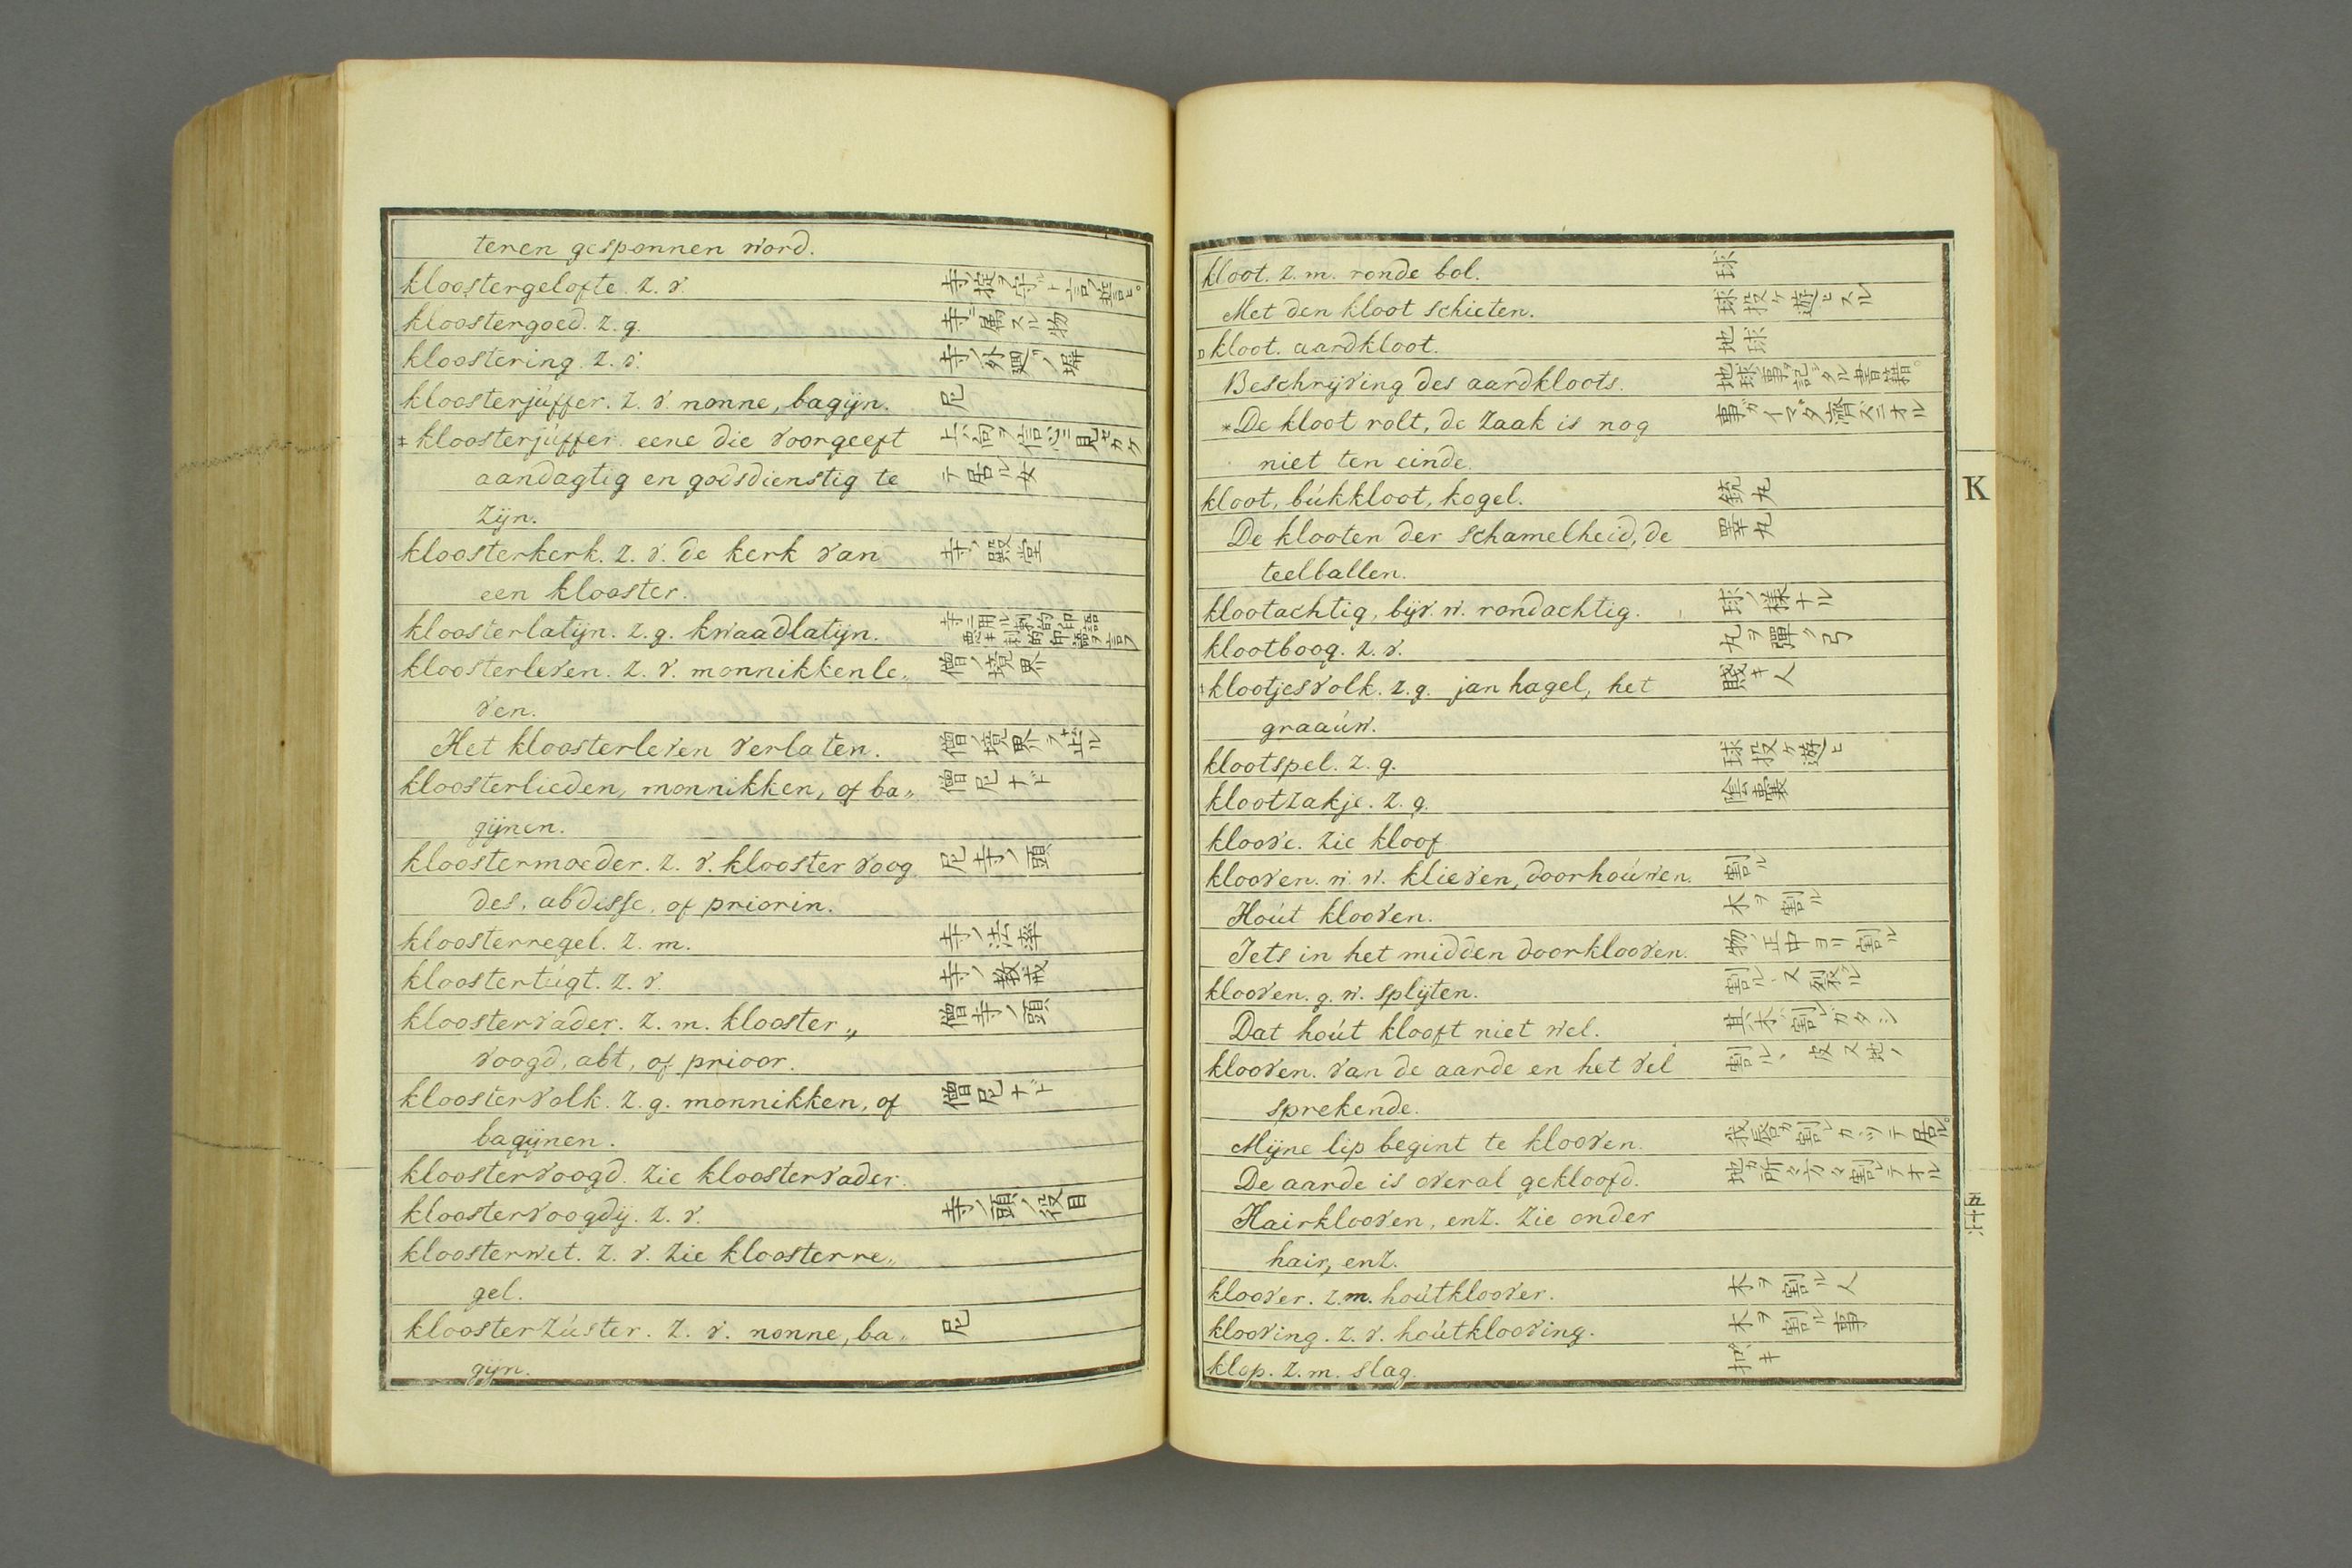 teren gesponnen word.
kloostergelofte. z. v. 寺ノ掟ヲ守ルト言フ誓ヒ。
kloostergoed. z. g. 寺ニ属スル物
kloostering. z. v. 寺ノ外廻リノ塀
kloosterjúffer. z. v. nonne, bagijn. 尼
‡ kloosterjúffer. eene die voorgeeft 上ハ向ヲ信心ニ見セカケ
aandagtig en godsdienstig te テ居ル女
zijn.
kloosterkerk. z. v. de kerk van 寺ノ殿堂
een klooster.
kloosterlatijn. z. g. kwaadlatijn. 寺ニ用ル刺的印語 悪キ刺的印語ヲ言フ
kloosterleven. z. v. monnikkenle„ 僧ノ境界
ven.
Het kloosterleven verlaten. 僧ノ境界ヲ止ル
kloosterlieden, monnikken, of ba„ 僧尼ナド
gijnen.
kloostermoeder. z. v. klooster voog 尼寺ノ頭
des, abdisse, of priorin.
kloosterregel. z. m. 寺ノ法率
kloostertúgt. z. v. 寺ノ教戒
kloostervader. z. m. klooster„ 僧寺ノ頭
voogd, abt, of prioor.
kloostervolk. z. g. monnikken, of 僧尼ナド
bagijnen.
kloostervoogd. zie kloostervader.
kloostervoogdij. z. v. 寺ノ頭ノ役目
kloosterwet. z. v. zie kloosterre„
gel.
kloosterzúster. z. v. nonne, ba„ 尼
gijn.
kloot. z. m. ronde bol. 球
Met den kloot schieten. 球投ケ遊ヒスル
kloot. aardkloot. 地球
Beschrijving des aardkloots. 地球ノ事ヲ記シタル書籍。
*De kloot rolt, de zaak is nog 事ガイマダ濟ズニオル
niet ten einde.
kloot, búkkloot, kogel. 銃丸
De klooten der schamelheid, de 睪丸
teelballen.
klootachtig, bijv. w. rondachtig. 球ノ様ナル
klootboog. z. v. 丸ヲ彈ク弓
‡klootjesvolk. z. g. jan hagel, het 賤キ人
graaúw.
klootspel. z. g. 球投ケ遊ヒ
klootzakje. z. g. 陰嚢
kloove. zie kloof
klooven. w. w. klieven, doorhoúwen. 割ル
Hoút klooven. 木ヲ割ル
Iets in het midden doorklooven. 物ノ正中ヨリ割ル
klooven. g. w. splijten. 割ル、又裂ル
Dat hoút klooft niet wel. 其木ハ割レガタシ
klooven. van de aarde en het vel 割ル、皮又地ノ
sprekende.
Mijne lip begint te klooven. 我唇ガ割レカツテ居ル。
De aarde is overal gekloofd. 地ガ所々方々割レテオル
Hairklooven, enz. zie onder
hair, enz.
kloover. z. m. hoútkloover. 木ヲ割ル人
klooving. z. v. hoútklooving. 木ヲ割ル事
klop. z. m. slag.
K